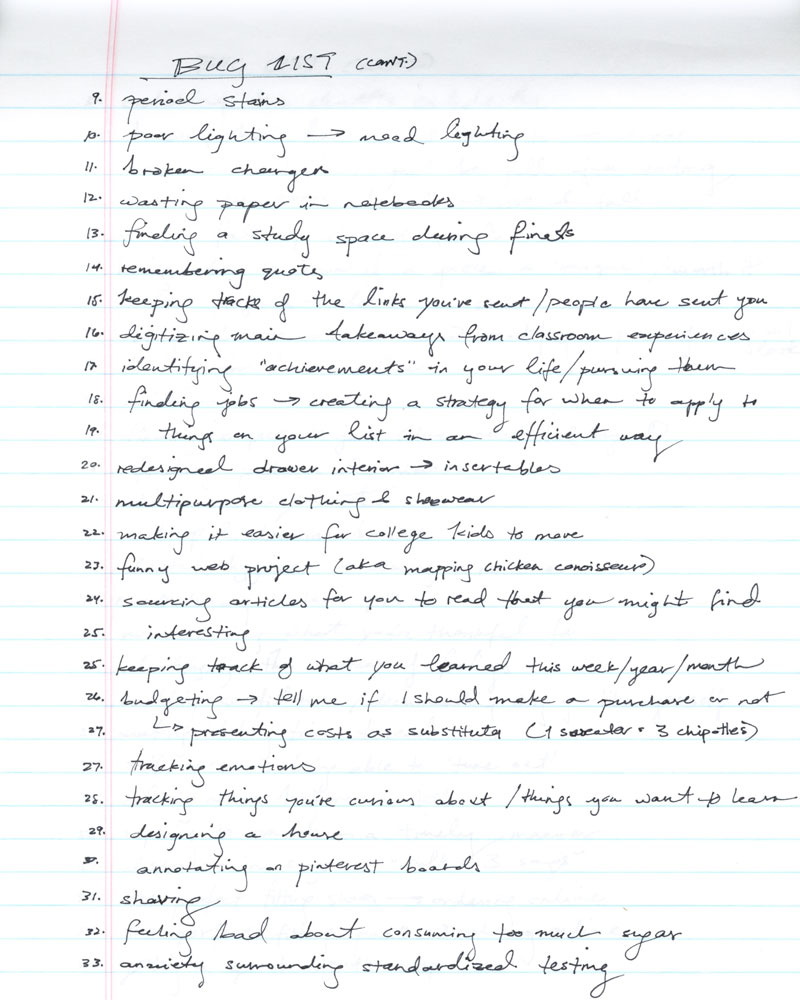 BUG LIST (CONT.)
9. period stains
10. poor lighting → mood lighting
11. broken chargers
12. wasting paper in notebooks
13. finding a study space during finals
14. remembering quotes
15. keeping track of the links you've sent/people have sent you
16. digitizing main takeaways from classroom experiences
17. identifying "achievements" in your life/pursuing them
18. finding jobs → creating a strategy for when to apply to
19. things on your list in an efficient way
20. redesigned drawer interior → insertables
21. multipurpose clothing & shoewear
22. making it easier for college kids to move
23. funny web project (aka mapping chicken conoisseurs)
24. sourcing articles for you to read that you might find
25. interesting
25. keeping track of what you learned this week/year/month
26. budgeting → tell me if I should make a purchase or not
27. ↳ presenting costs as substituta (1 sweater = 3 chipotles)
27. tracking emotions
28. tracking things you're curious about /things you want to learn
29. designing a house
30. annotating on pinterest boards
31. shaving
32. feeling bad about consuming too much sugar
33. anxiety surrounding standardized testing